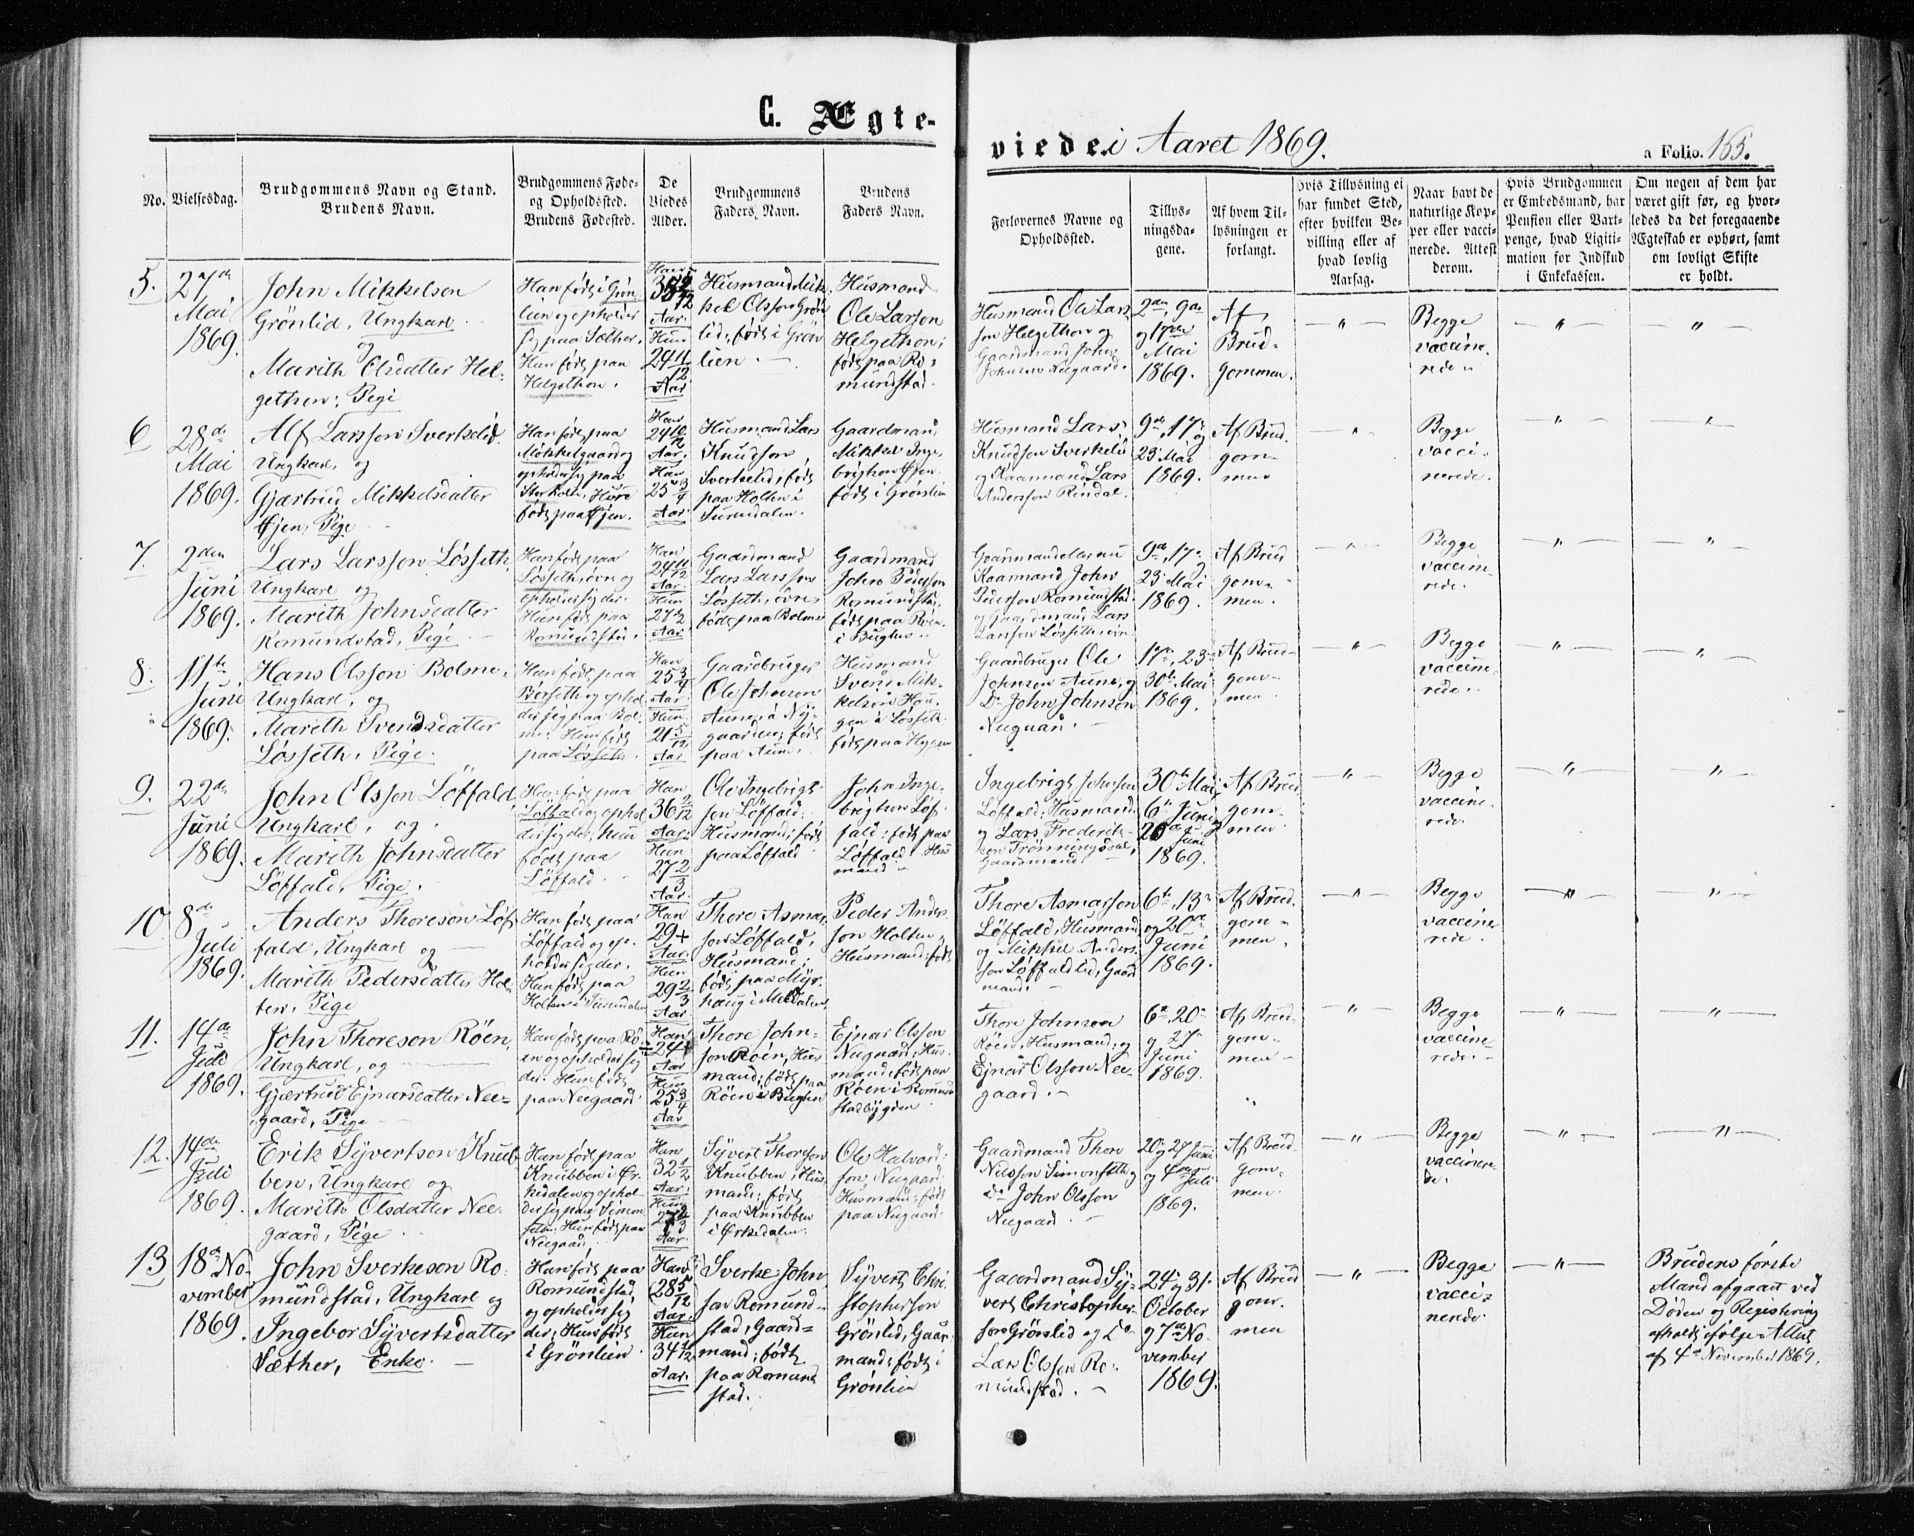 C. Ægte-
viede i Aaret 1869.
a Folio. 165.
No.
Vielsesdag.
Brudgommens Navn og Stand.
Brudens Navn.
Brudgommens Føde-
og Opholdssted.
Brudens Fødested.
De
Viedes
Alder.
Brudgommens
Faders Navn.
Brudens
Faders Navn.
Forlovernes Navne og
Opholdssted.
Tillys-
ningsda-
gene.
Af hvem Til-
lysningen er
forlangt.
Hvis Tillysning ei
har fundet Sted,
efter hvilken Be-
villing eller af
hvad lovlig
Aarsag.
Naar havt de
naturlige Kop-
per eller vacci-
nerede. Attest
derom.
Hvis Brudgommen
er Embedsmand, har
Pension eller Vart-
penge, hvad Ligiti-
mation for Indskud
i Enkekassen.
Om nogen af dem har
været gift før, og hvor-
ledes da det foregaaende
Ægteskab er ophørt, samt
om lovligt Skifte
er holdt.
5.
27de
Mai
1869.
John Mikkelson
Grönlid, Ungkarl
og
Marith Olsdatter Hel-
gethon; Pige
Han födt i Grön-
lien og opholder
sig paa Sæther,
Hun födt paa
Helgethon.
Han
Aar
Hun
24 11/12
Aar
Husmand Mik-
kel Olsson Grön-
lid, födt i Grön-
lien
Husmand
Ole Larsson
Helgethon;
födt paa Ro-
mundstad.
Husmand Ole Lars-
son Helgethon og
Gaardmand John
Johnson Neegaard
2den, 9de
og 17de
Mai
1869.
Af
Brud-
gommen.
"
Begge
vaccine-
rede
"
"
6
28de
Mai
1869.
Alf Larsson Sverkelid
Ungkarl, og
Gjærtrud Mikkelsdatter
Øjen, Pige
Han födt paa
Mikkelgaard og
opholder sig paa
Storholt, Hun
födt paa Øjen.
Han
24 10/12
Aar.
25 3/4
Aar.
Husmand Lars
Knudson
Sverkelid, födt
paa Holten i
Surendalen.
Gaardmand
Mikkel Inge-
brigtson Øjen
födt i Grönlien
Husmand Lars
Knudson Sverkelid
og Kaarmand Lars
Anderson Rindal.
9de, 17de og
23de Mai
1869.
Af Brud-
gom-
men
"
Begge
vacci-
nerede.
"
"
7.
2den
Juni
1869.
Lars Larsson Løsseth,
Ungkarl og
Marith Johnsdatter
Romundstad, Pige.
Han födt paa
Løsseth, övre og
opholder sig der.
Hun födt paa
Romundstad.
Han
24 11/12
Aar.
Hun
Aar.
Gaardmand
Lars Larsson
Løsseth, övre
födt paa Bolme
Gaardmand
John Pederson
Romundstad,
födt paa Röen
i Bugten
Kaarmand John
Pederson Romundstad
og Gaardmand Lars
Larsson Løsseth, övre
9de, 17de
23de Mai
1869.
Af Brud
gom-
men.
"
Begge
vaccine-
rede.
"
"
8.
11te
Juni
1869.
Hans Olsson Bolme,
Ungkarl, og
Marith Svendsdatter
Løsseth, Pige.
Han födt paa
Börseth og ophol-
der sig paa Bol-
me. Hun födt
paa Løsseth.
Han
25 3/4
Aar.
Hun
21 5/12
Aar
Gaardbruger
Ole Johnson
Aune, i Ny-
gaarden; födt
paa Aune.
Husmand
Svend Mik-
kelson Hau-
gen i Løsseth
födt paa Heggem
Gaardbruger Ole
Johnson Aune, og
Do John Johnson
Neegaard
17de, 23de
30te Mai
1869.
Af Brud-
gom-
men
"
Begge
vaccine-
rede.
"
"
9.
22de
Juni
1869.
John Olsson Löffald,
Ungkarl, og
Marith Johnsdatter
Löffald, Pige.
Han födt paa
Löffald og ophol-
der sig der, Hun
födt paa
Löffald.
Han
36 2/12
Aar.
Hun
27 2/3
Aar.
Ole Ingebrigt-
son Löffald;
Husmand; födt
paa Löffald
John Inge-
brigtson Löf-
fald; födt paa
Löffald; Hus
mand
Ingebrigt Johnson
Löffald, Husmand,
og Lars Frederik-
son Trönningsdal,
Gaardmand.
30te Mai,
6te Juni og
20de Juni
1869.
Af Brud
gom-
men
"
Begge
vaccine-
rede.
"
"
10.
8de
Juli
1869.
Anders Thoreson Löf-
fald, Ungkarl og
Marith Pedersdatter Hol-
ten, Pige
Han födt paa
Löffald og op-
holder sig der.
Hun födt paa
Holten i Surendalen
Han
29 +
Aar.
Hun
29 2/3
Aar.
Thore Asmar-
son Löffald,
Husmand;
födt paa Myr-
haug i Meldalen
Peder Anders-
son Holten,
Husmand; födt
Thore Asmarson
Löffald, Husmand
og Mikkel Anders-
son Löffaldlid, Gaard
mand.
6te, 13de
og 20de
Juni
1869.
Af Brud-
gom-
men.
"
Begge
vaccine-
rede.
"
"
11.
14de
Juli
1869.
John Thoreson Röen,
Ungkarl, og
Gjærtrud Ejnarsdatter Nee-
gaard, Pige
Han födt paa Rö-
en og opholder sig
der. Hun födt
paa Neegaard.
Han
24 +
Aar
Hun
25 3/4
Aar
Thore John-
son Röen, Hus
mand; födt paa
Röen i Bugten
Ejnar Olsson
Neegaard, Hus-
mand; födt paa
Röen i Romund
stadbygden
Thore Johnson
Röen, Husmand, og
Ejnar Olsson Nee-
gaard.
6te, 20de
og 27de
Juni
1869.
Af Brud-
gom-
men
"
"
Begge
vaccine-
rede.
"
"
12.
14de
Juli
1869.
Erik Syvertson Knub-
ben, Ungkarl og
Marith Olsdatter Nee-
gaard, Pige
Han födt paa
Knubben i Ör-
kedalen og ophol-
der sig paa Simon
seth. Hun födt paa
Neegaard
Han
32 1/2
Aar.
Hun
Aar.
Syvert Thorson
Knubben, Hus
mand; födt
paa Knubben
i Örkedalen.
Ole Halvord-
son, Neegaard
Husmand; födt
paa Neegaard
Gaardmand Thore
Nilsson Simonseth og
Do John Olsson
Neegaard
20de og 27 Juni
og 4de
Juli
1869.
Af Brud-
gom-
men.
"
Begge
vaccinere-
de.
"
"
13
18de No-
vember
1869.
John Sverkeson Ro-
mundstad, Ungkarl og
Ingebor Syvertsdatter
Sæther, Enke.
Han födt paa
Romundstad
og opholder sig
der, Hun födt
i Grönlien
Han
28 5/12
Aar.
Hun
34 1/12
Aar.
Sverke John
son Romund-
stad, Gaard-
mand; födt
paa Romund
stad.
Syvert Chri-
stopherson
Grönlid, Gaar-
mand; födt i
Grönlien
Gaardmand Sy-
vert Christopher-
son Grönlid og Do
Lars Olsson Ro-
mundstad.
24de og 31te
October
og 7de No-
vember
1869.
Af Brud
gom-
men
"
Begge
vacci-
nerede
"
Brudens förste
Mand afgaaet ved
Döden og Registrering
afholdt ifölge Attest
af 4de November 1869.